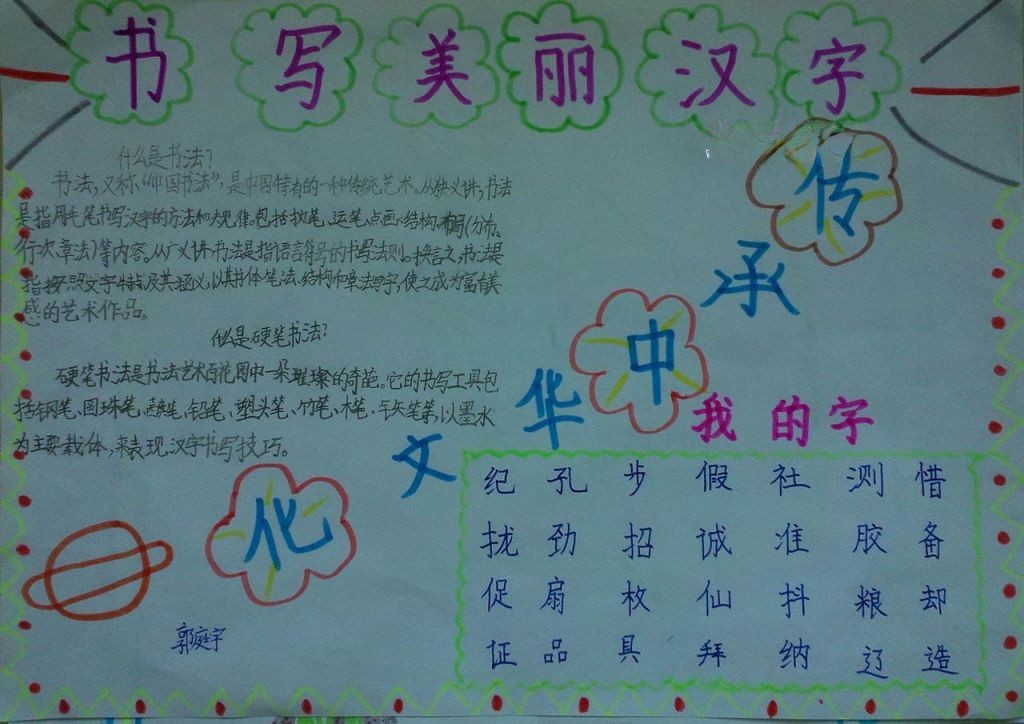 书写美丽汉字
什么是书法?
书法,又称“中国书法”,是中国特有的一种传统艺术。从狭义讲,书法
是指用毛笔书写汉字的方法和规律。包括执笔、运笔、点画、结构、布局(分布、
行次、章法)等内容。从广义讲,书法是指语言符号的书写法则。换言之,书法是
指按照文字特点及其涵义,以其书体笔法、结构和章法写字,使之成为富有美
感的艺术作品。
什么是硬笔书法?
硬笔书法是书法艺术百花园中一朵璀璨的奇葩。它的书写工具包
括钢笔、圆珠笔、铅笔、塑头笔、竹笔、木笔、等,以墨水
为主要载体,来表现汉字书写技巧。
传承中华文化
我的字
纪 孔 步 假 社 测 惜
拢 劲 招 诚 准 胶 备
促 扇 枚 仙 抖 粮 却
证 品 具 拜 纳 辽 造
郭庭宇